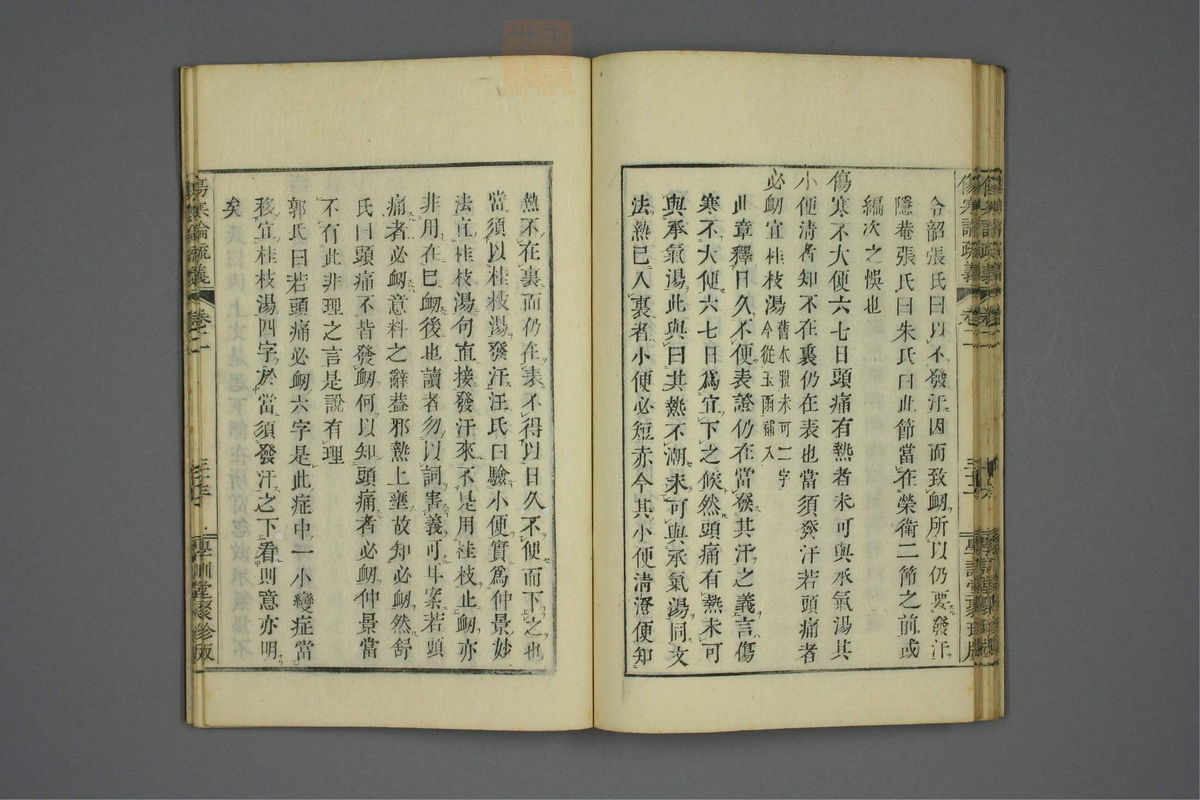 令韶張氏曰以不發汗因而致衂所以仍要發汗
隱菴張氏曰朱氏曰此節當在榮衛二節之前或
編次之悞也
傷寒不大便六七日頭痛有熱者未可與承氣湯其
小便清者知不在裏仍在表也當須發汗若頭痛者
必衂宜桂枝湯舊本脫未可二字
今從玉函補入
此章釋日久不便表證仍在當發其汗之義言傷
寒不大便六七日爲宜下之候然頭痛有熱未可
與承氣湯此與曰其熱不潮未可與承氣湯同文
法熱已入裏者小便必短赤今其小便清澄便知
熱不在裏而仍在表不得以日久不便而下之也
當須以桂枝湯發汗汪氏曰驗小便實爲仲景妙
法宜桂枝湯句直接發汗來不是用桂枝止衂亦
非用在巳衂後也讀者勿以詞害義可耳案若頭
痛者必衂意料之辭葢邪熱上壅故知必衂然舒
氏曰頭痛不皆發衂何以知頭痛者必衂仲景當
不有此非理之言是說有理
郭氏曰若頭痛必衂六字是此症中一小變症當
移宜桂枝湯四字於當須發汗之下看則意亦明
矣
傷寒論疏義
卷二
學訓堂聚珍版